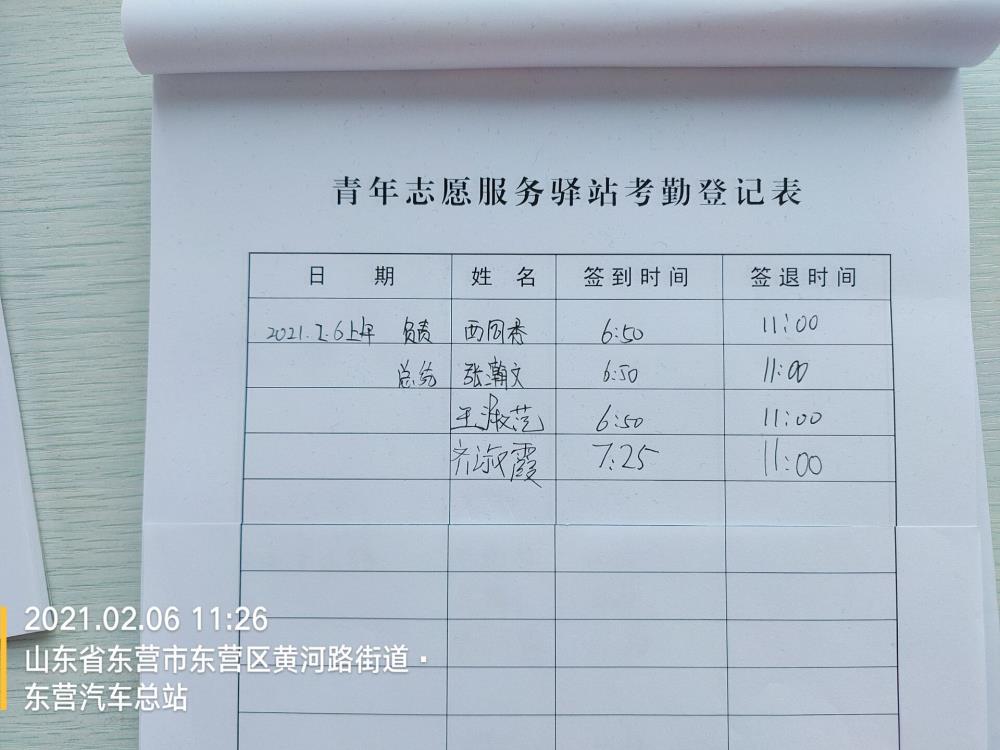 青年志愿服务驿站考勤登记表
日 期 姓 名 签到时间 签退时间
2021.2.6上午 负责 西同香 6:50 11:00
总结 张瀚文 6:50 11:00
王淑范 6:50 11:00
齐淑霞 7:25 11:00
2021.02.06 11:26
山东省东营市东营区黄河路街道·
东营汽车总站